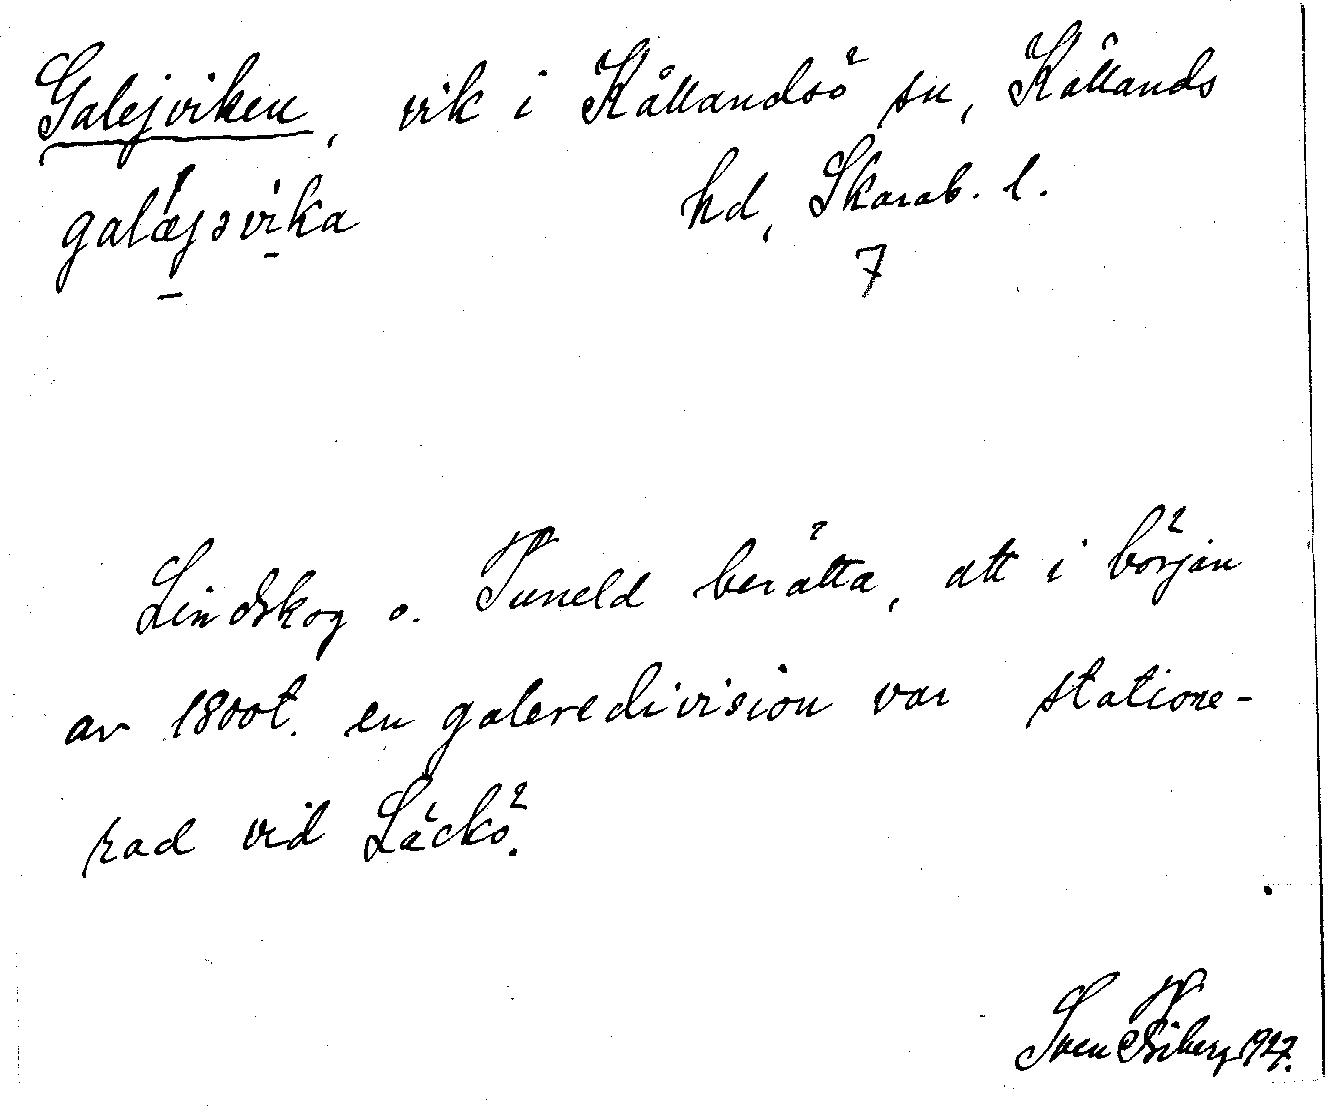 Galejviken, vik i Kållandsö sn, Kållands
galæjsvika hd, Skarab. l.
7
Lindskog o. Tuneld berätta, att i början
av 1800t. en galeredivision var statione-
rad vid Läckö.
Sven 1927.